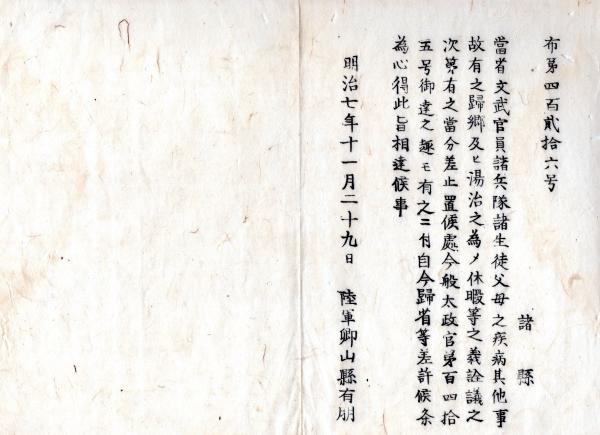 布第四百貳拾六号
諸縣
當省文武官員諸兵隊諸生徒父母之疾病其他事
故有之歸郷及ヒ湯治之為メ休暇等之義詮議之
次第有之當分差止置候處今般太政官第百四拾
五号御達之趣モ有之ニ付自今歸省等差許候条
為心得此旨相達候事
明治七年十一月二十九日 陸軍卿山縣有朋